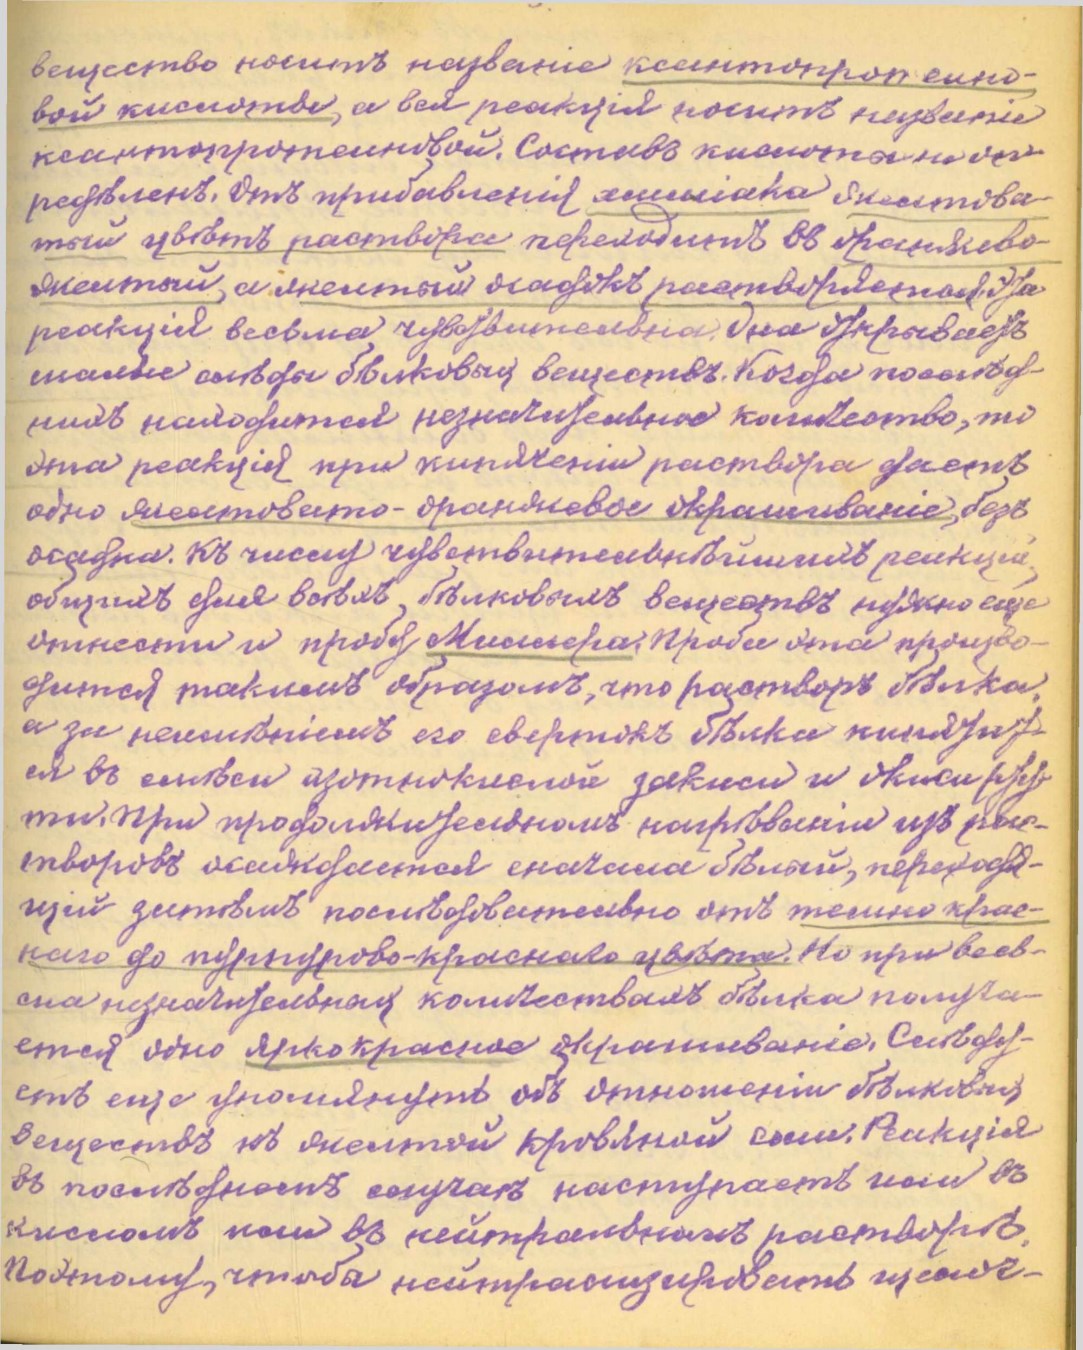 вещество носитъ названіе ксантопротеино-
вой кислоты, а вся реакція носитъ названіе
ксантопротеиновой. Составъ кислоты не оп-
редѣленъ. Отъ прибавленія амміака желтова-
тый цвѣтъ раствора переходитъ въ оранжево-
желтый, а желтый осадокъ растворяется. Эта
реакція весьма чувствительна. Она открываетъ
малые слѣды бѣлковыхъ веществъ. Когда послѣд-
нихъ находится незначительное количество, то
эта реакція при кипяченіи раствора даетъ
одно желтовато-оранжевое окрашиваніе, безъ
осадка. Къ числу чувствительнѣйшихъ реакцій,
общихъ для всѣхъ бѣлковыхъ веществъ нужно еще
отнести и пробу Миллера. Проба эта произво-
дится такимъ образомъ, что растворъ бѣлка,
а за неимѣніемъ его свертокъ бѣлка кипятит-
ся въ смѣси азотнокислой закиси и окиси рту-
ти. При продолжительномъ нагрѣваніи изъ рас-
творовъ осаждается сначала бѣлый, переходя-
щій затѣмъ послѣдовательно отъ темно крас-
наго до пурпурово-краснаго цвѣта. Но при весь-
ма незначительныхъ количествахъ бѣлка получа-
ется одно ярко красное окрашиваніе. Слѣду-
етъ еще упомянуть объ отношеніи бѣлковыхъ
веществъ къ желтой кровяной соли. Реакція
въ послѣднемъ случаѣ наступаетъ или въ
кисломъ или въ нейтральномъ растворѣ.
Поэтому, чтобы нейтрализировать щелоч-